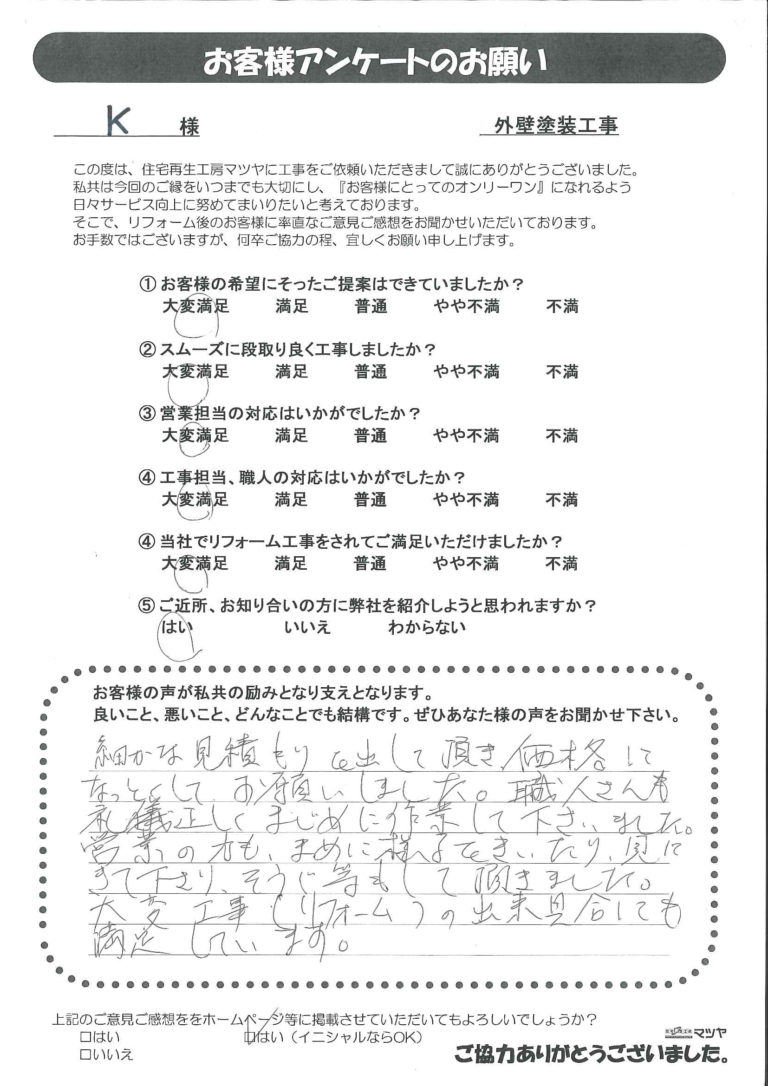 お客様アンケートのお願い
K 様 外壁塗装工事
この度は、住宅再生工房マツヤに工事をご依頼いただきまして誠にありがとうございました。
私共は今回のご縁をいつまでも大切にし、『お客様にとってのオンリーワン』になれるよう
日々サービス向上に努めてまいりたいと考えております。
そこで、リフォーム後のお客様に率直なご意見ご感想をお聞かせいただいております。
お手数ではございますが、何卒ご協力の程、宜しくお願い申し上げます。
① お客様の希望にそったご提案はできていましたか？
大変満足 満足 普通 やや不満 不満
② スムーズに段取り良く工事しましたか？
大変満足 満足 普通 やや不満 不満
③ 営業担当の対応はいかがでしたか？
大変満足 満足 普通 やや不満 不満
④ 工事担当、職人の対応はいかがでしたか？
大変満足 満足 普通 やや不満 不満
④ 当社でリフォーム工事をされてご満足いただけましたか？
大変満足 満足 普通 やや不満 不満
⑤ ご近所、お知り合いの方に弊社を紹介しようと思われますか？
はい いいえ わからない
お客様の声が私共の励みとなり支えとなります。
良いこと、悪いこと、どんなことでも結構です。ぜひあなた様の声をお聞かせ下さい。
細かな見積もりを出して頂き、価格に
なっとくして、お願いしました。職人さんも
礼儀正しくまじめに作業して下さいました。
営業の方も、まめに様子をきいたり、見に
きて下さり、そうじ等もして頂きました。
大変工事（リフォーム）の出来具合にも
満足しています。
上記のご意見ご感想ををホームページ等に掲載させていただいてもよろしいでしょうか？
□はい □はい（イニシャルならOK）
□いいえ
住宅再生工房 マツヤ
ご協力ありがとうございました。